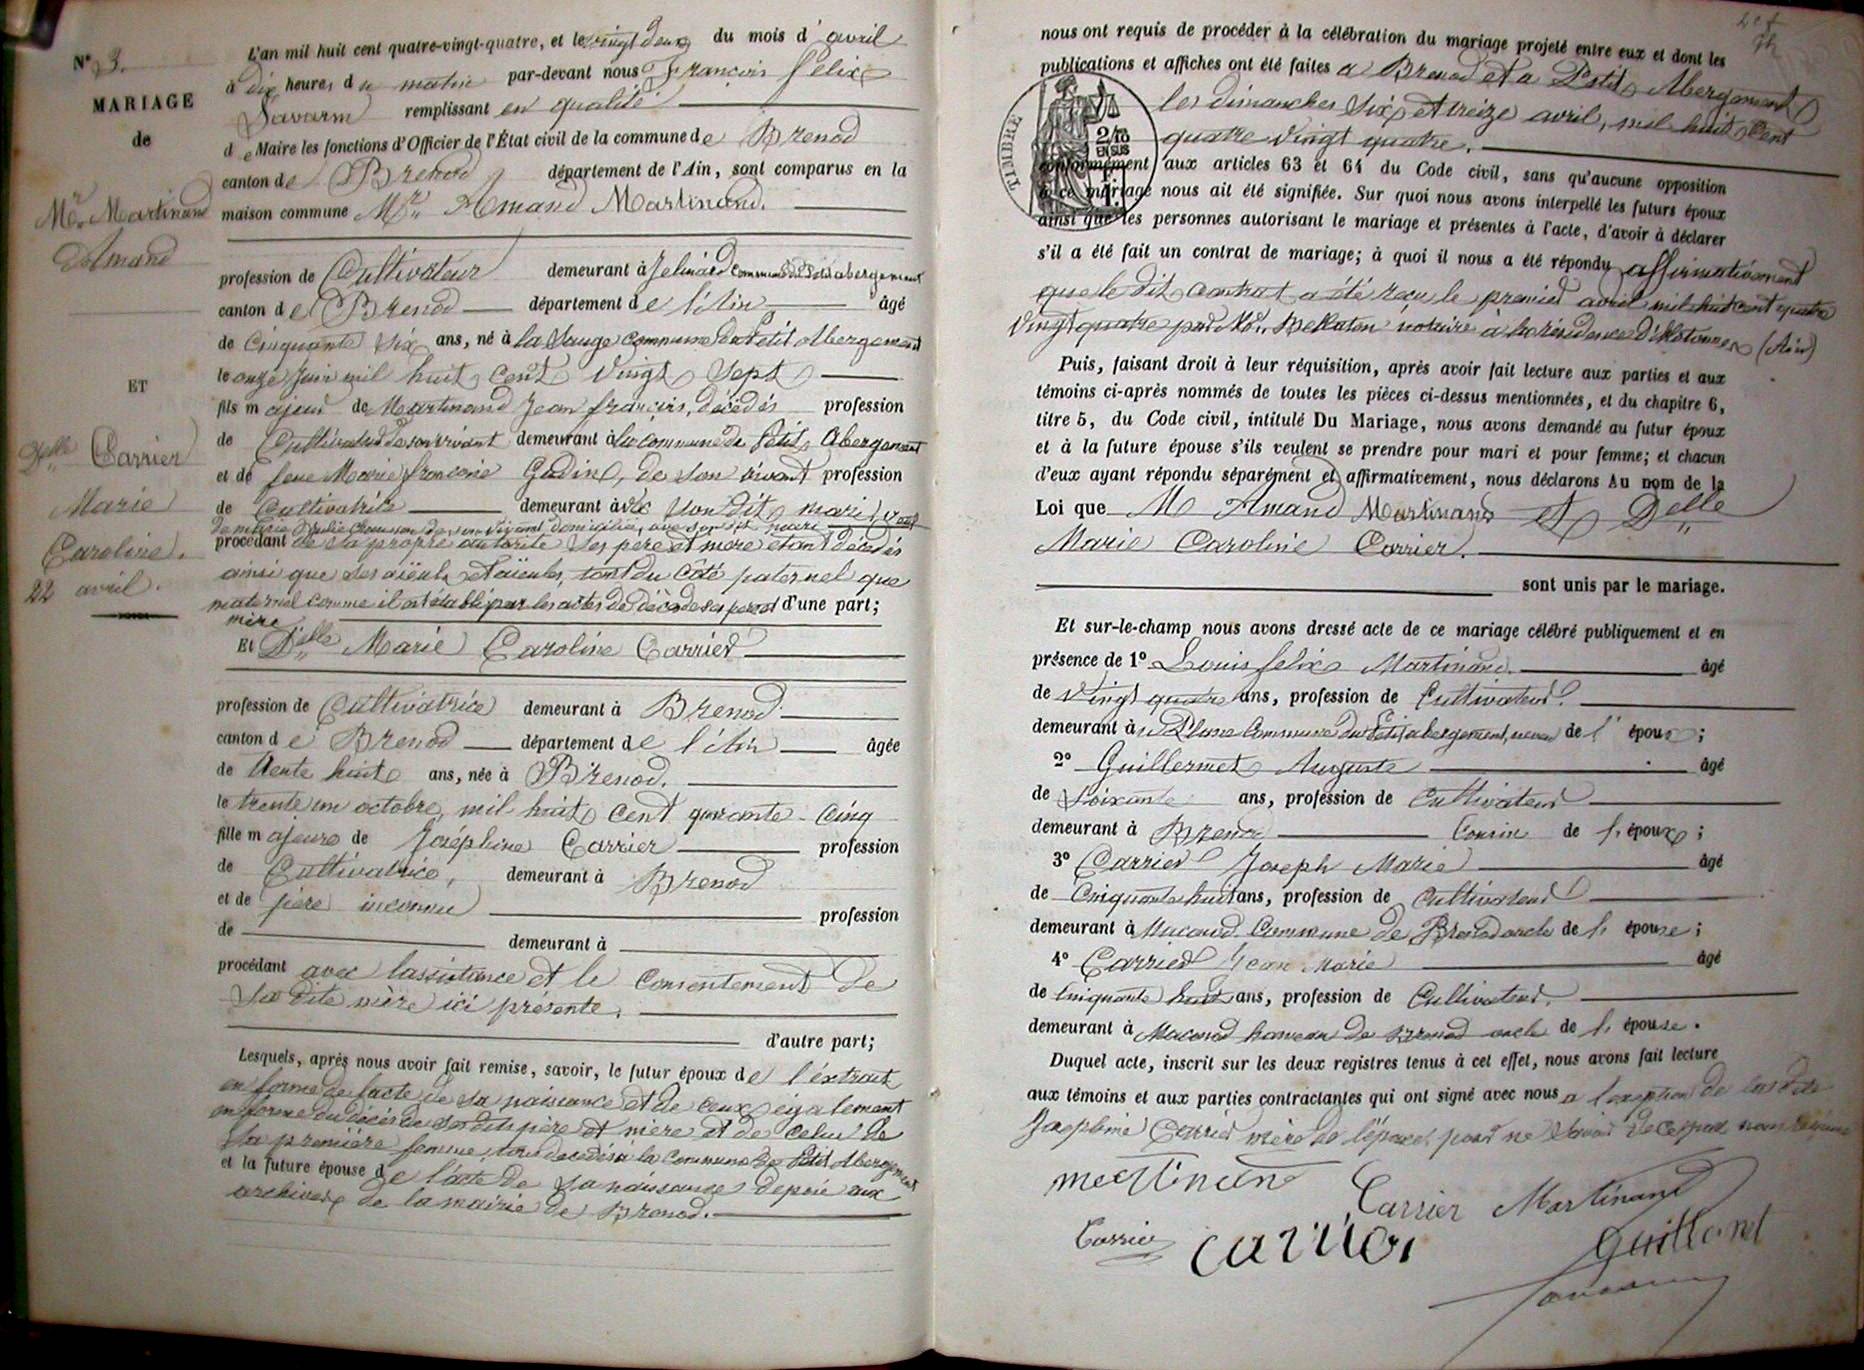 N° 3.
MARIAGE
de
Mr. Martinand
Amand
ET
Delle Carrier
Marie
Caroline.
22 avril.
L'an mil huit cent quatre-vingt-quatre, et le vingt deux du mois d'avril
à dix heures du matin par-devant nous François Félix
Savarin remplissant en qualité
de Maire les fonctions d'Officier de l'État civil de la commune de Brenod
canton de Brenod département de l'Ain, sont comparus en la
maison commune Mr. Amand Martinand.
profession de Cultivateur demeurant à Jelinard commune du Petit abergement
canton de Brenod département de l'Ain âgé
de Cinquante six ans, né à la Sauge commune du Petit Abergement
le onze juin mil huit cent vingt sept
fils majeur de Martinand Jean françois, décédés profession
de Cultivateur de son vivant demeurant à la commune de Petit Abergement
et de feue Marie françoise Godin, de son vivant profession
de Cultivatrice demeurant avec son dit mari, veuf
de son vivant domiciliée avec son dit mari
procédant de sa propre autorité ses père et mère étant décédés
ainsi que ses aïeuls et aïeules, tant du côté paternel que
maternel comme il est établi par les actes de décès de ses père et d'une part;
mère
Et Delle Marie Caroline Carrier
profession de Cultivatrice demeurant à Brenod
canton de Brenod département de l'Ain âgée
de trente huit ans, née à Brenod.
le trente un octobre, mil huit cent quarante-cinq
fille majeure de Joséphine Carrier profession
de Cultivatrice, demeurant à Brenod
et de père inconnu profession
de demeurant à
procédant avec l'assistance et le consentement de
sa dite mère ici présente.
d'autre part;
Lesquels, après nous avoir fait remise, savoir, le futur époux de l'extrait
en forme de l'acte de sa naissance et de ceux également
en forme du décès de ses dits père et mère et de celui de
sa première femme, tous décédés à la commune de Petit Abergement
et la future épouse de l'acte de sa naissance déposé aux
archives de la mairie de Brenod.
nous ont requis de procéder à la célébration du mariage projeté entre eux et dont les
publications et affiches ont été faites à Brenod et à Petit Abergement
les dimanches six et treize avril, mil huit cent
quatre vingt quatre.
TIMBRE
2/10
EN SUS
conformément aux articles 63 et 64 du Code civil, sans qu'aucune opposition
à ce mariage nous ait été signifiée. Sur quoi nous avons interpellé les futurs époux
ainsi que les personnes autorisant le mariage et présentes à l'acte, d'avoir à déclarer
s'il a été fait un contrat de mariage; à quoi il nous a été répondu affirmativement
que le dit contrat a été reçu le premier avril mil huit cent quatre
vingt quatre par Me. notaire à la résidence d'Hotonnes (Ain)
Puis, faisant droit à leur réquisition, après avoir fait lecture aux parties et aux
témoins ci-après nommés de toutes les pièces ci-dessus mentionnées, et du chapitre 6,
titre 5, du Code civil, intitulé Du Mariage, nous avons demandé au futur époux
et à la future épouse s'ils veulent se prendre pour mari et pour femme; et chacun
d'eux ayant répondu séparément et affirmativement, nous déclarons Au nom de la
Loi que Mr Amand Martinand et Delle
Marie Caroline Carrier.
sont unis par le mariage.
Et sur-le-champ nous avons dressé acte de ce mariage célébré publiquement et en
présence de 1° Louis felix Martinand. âgé
de Vingt quatre ans, profession de Cultivateur.
demeurant à Commune du Petit abergement, neveu de l'époux;
2° Guillermet Auguste âgé
de Soixante ans, profession de Cultivateur
demeurant à Brenod Cousin de l'époux;
3° Carrier Joseph Marie âgé
de Cinquante huit ans, profession de Cultivateur
demeurant à Macconod Commune de Brenod oncle de l'épouse;
4° Carrier Jean Marie âgé
de Cinquante huit ans, profession de Cultivateur.
demeurant à Macconod hameau de Brenod oncle de l'épouse.
Duquel acte, inscrit sur les deux registres tenus à cet effet, nous avons fait lecture
aux témoins et aux parties contractantes qui ont signé avec nous à l'exception de la dite
Josephine Carrier mère de l'épouse, pour ne savoir de ce
Martinand
Carrier Martinand
Carrier Carrier Guillermet
Savarin